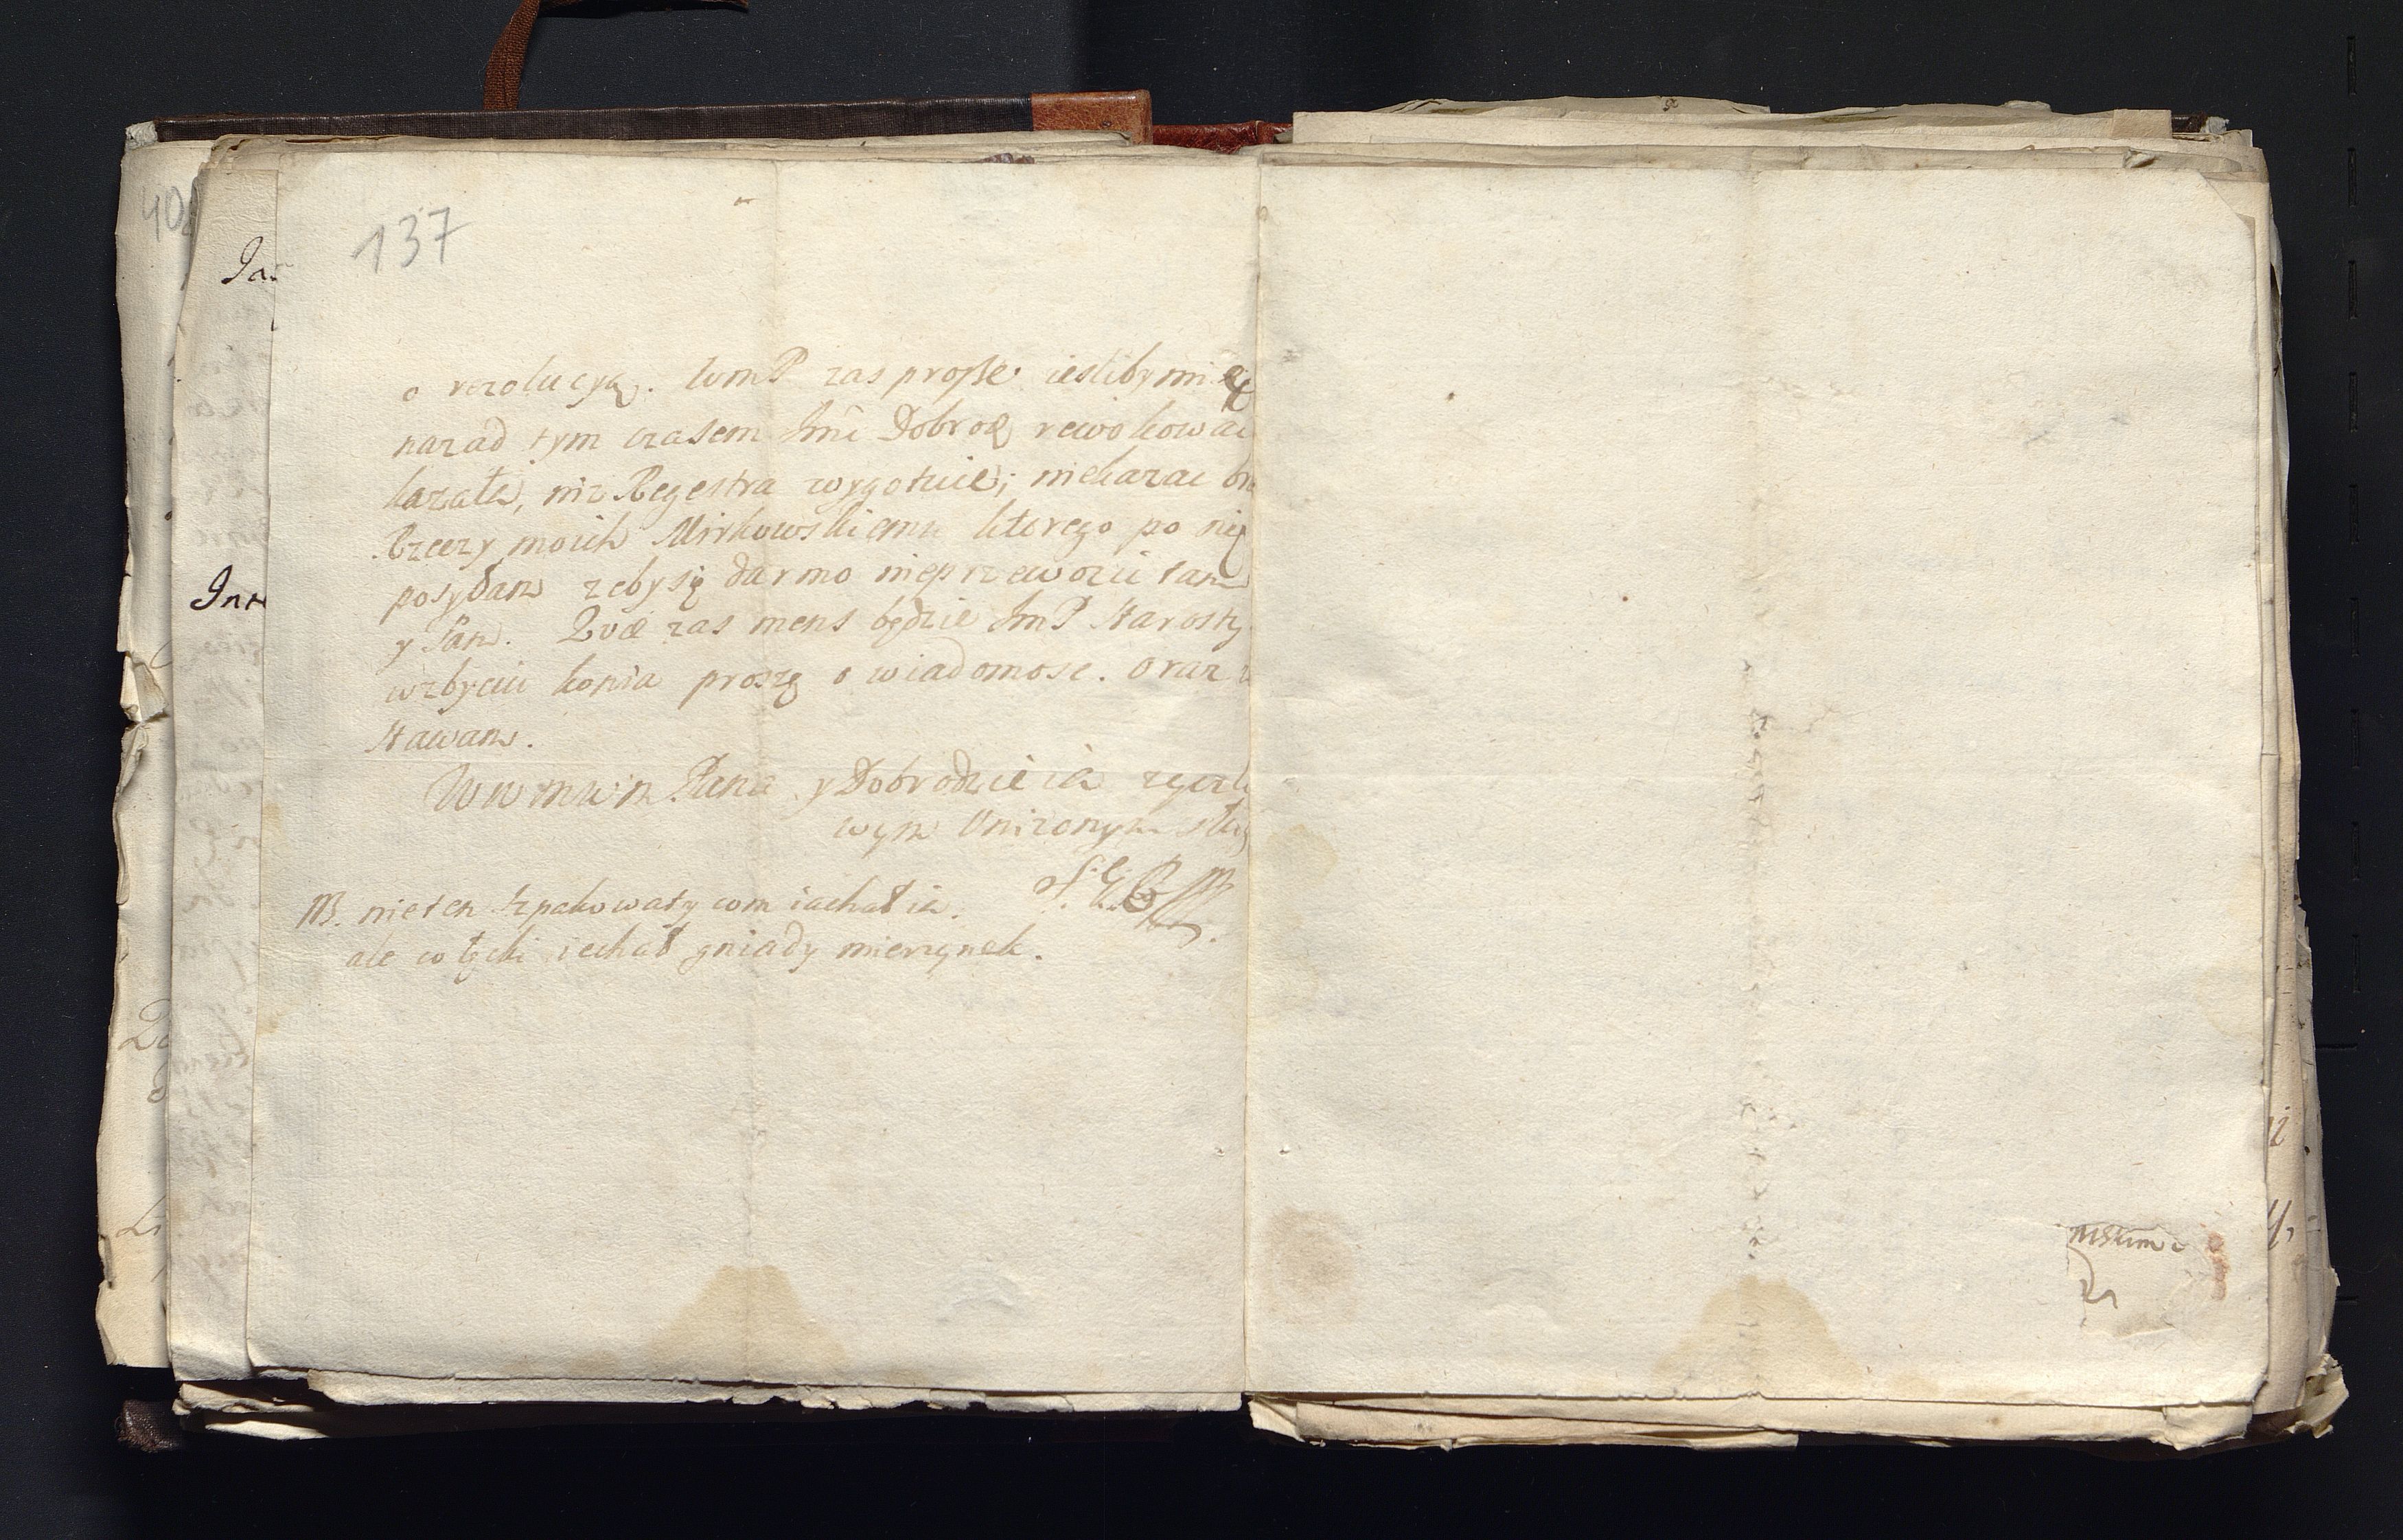 137
o rezolucyą. WmP zas proszę iesliby mię
nazad tym czasem Jmć Dobroć rewokować
kazała, niz Regestra wygotuie; niekazac
Rzeczy moich Mirkowskiemu ktorego po nię
posyłam zeby się darmo nieprzewoził tam
y sam. Quæ zas mens będzie JmP Starosty
w zbyciu konia proszę o wiadomosc. oraz
stawam.
WWmMm Pana y Dobrodzieia zyczli
wym Unizonym sług
NB. nie ten szpakowaty com iachał ia.
ale co Łęcki iechał gniady mierzynek.